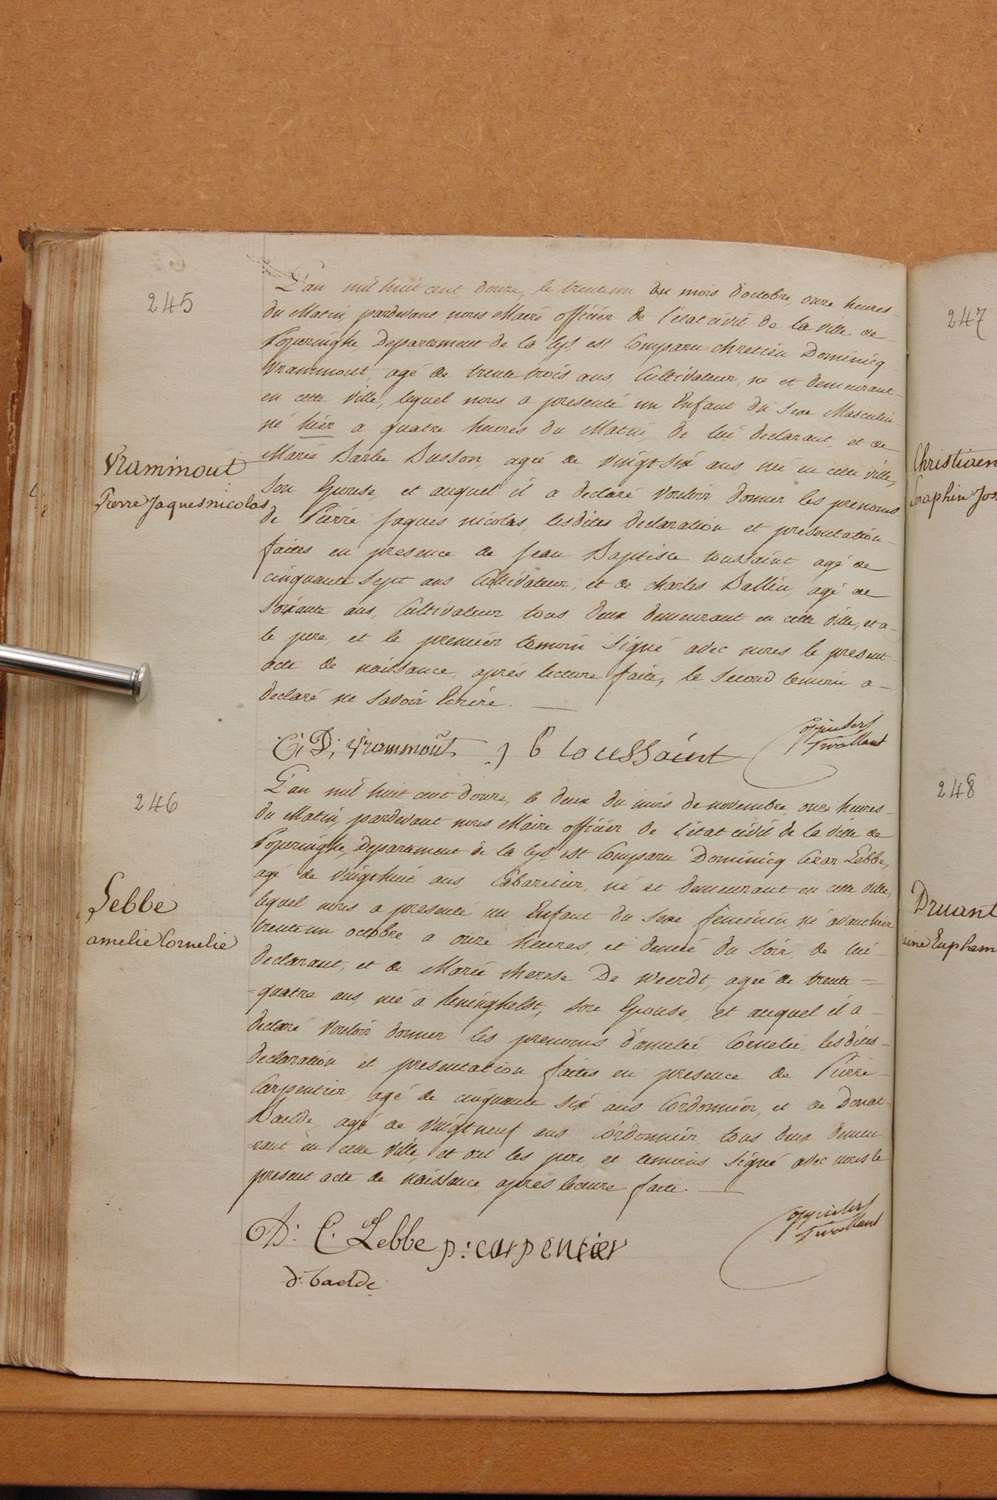 245
Vrammout
Pierre Jaques nicolas
L'an mil huit cent douze, le trente un du mois d'octobre, onze heures
du Matin, pardevant nous Maire officier de l'état civil de la ville de
Poperinghe Departement de la Lys est Comparu chretien Dominicq
Vrammout, agé de trente trois ans, Cultivateur, né et demeurant
en cette ville, lequel nous a presenté un Enfant du sexe Masculin
né hier a quatre heures du Matin, de lui declarant et de
Marie Barbe Busson, agée de vingt-six ans née en cette ville,
son Epouse, et auquel il a declaré vouloir donner les prenoms
de Pierre Jaques nicolas, lesdites declaration et presentation
faites en presence de Jean Baptiste toussaint agé de
cinquante sept ans Cultivateur, et de charles Dallin, agé de
soixante ans, Cultivateur tous deux demeurant en cette ville, et a
le pere et le premier temoin signé avec nous le present
acte de naissance, après lecture faite, le second temoin a
declaré ne savoir Ecrire.
C: D: vrammout j b toussaint
246
Lebbe
amelie Cornelie
L'an mil huit cent douze, le deux du mois de novembre onze heures
du Matin, pardevant nous Maire officier de l'état civil de la ville de
Poperinghe, Departement de la Lys est Comparu Dominicq Cezar Lebbe,
agé de vingthuit ans Cabaretier, né et demeurant en cette ville,
lequel nous a presenté un Enfant du sexe feminin né avant hier
trente un octobre a onze heures et demie du soir, de lui
declarant, et de Marie therese De weerdt, agée de trente
quatre ans née à Reninghelst, son Epouse, et auquel il a
declaré vouloir donner les prenoms d'amelie Cornelie, lesdites
declaration et presentation faites en presence de Pierre
Carpentier, agé de cinquante six ans Cordonnier, et de Donat
Baelde agé de vingt neuf ans Cordonnier tous deux demeu
rant en cette ville et ont les pere et temoins signé avec nous le
present acte de naissance, après lecture faite.
D: C. Lebbe p: carpentier
d: baelde
247
Christiaen
Seraphin Jos
248
Druant
Eupham